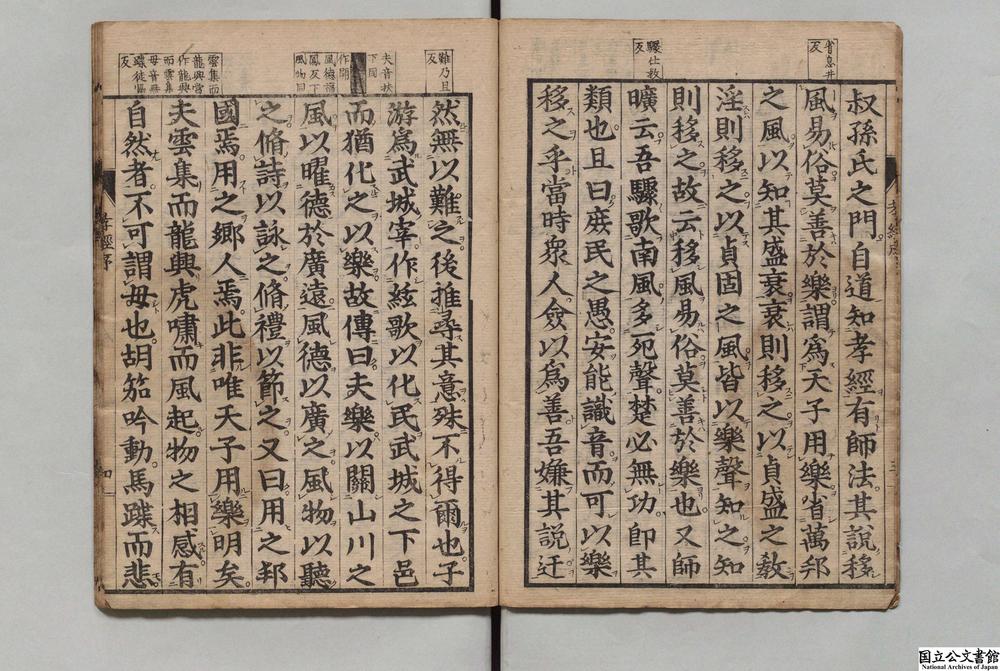 省息井
反
驟仕救
反
叔孫氏之門自道知孝經有師法其說移
風易俗莫善於樂謂爲天子用樂省萬邦
之風以知其盛衰衰則移之以貞盛之敎
淫則移之以貞固之風皆以樂聲知之知
則移之故云移風易俗莫善於樂也又師
曠云吾驟歌南風多死聲楚必無功卽其
類也且曰庶民之愚安能識音而可以樂
移之乎當時衆人僉以爲善吾嫌其說迂
孝經序
三
難乃旦
反
夫音扶
下同
風德福
鳳反下
風物同
雲集而
龍興當
作龍興
而雲集
毋音無
蹀徒協
反
然無以難之後推尋其意殊不得爾也子
游爲武城宰作絃歌以化民武城之下邑
而猶化之以樂故傳曰夫樂以關山川之
風以曜德於廣遠風德以廣之風物以聽
之脩詩以詠之脩禮以節之又曰用之邦
國焉用之鄉人焉此非唯天子用樂明矣
夫雲集而龍興虎嘯而風起物之相感有
自然者不可謂毋也胡笳吟動馬蹀而悲
孝經序
四
国立公文書館
National Archives of Japan